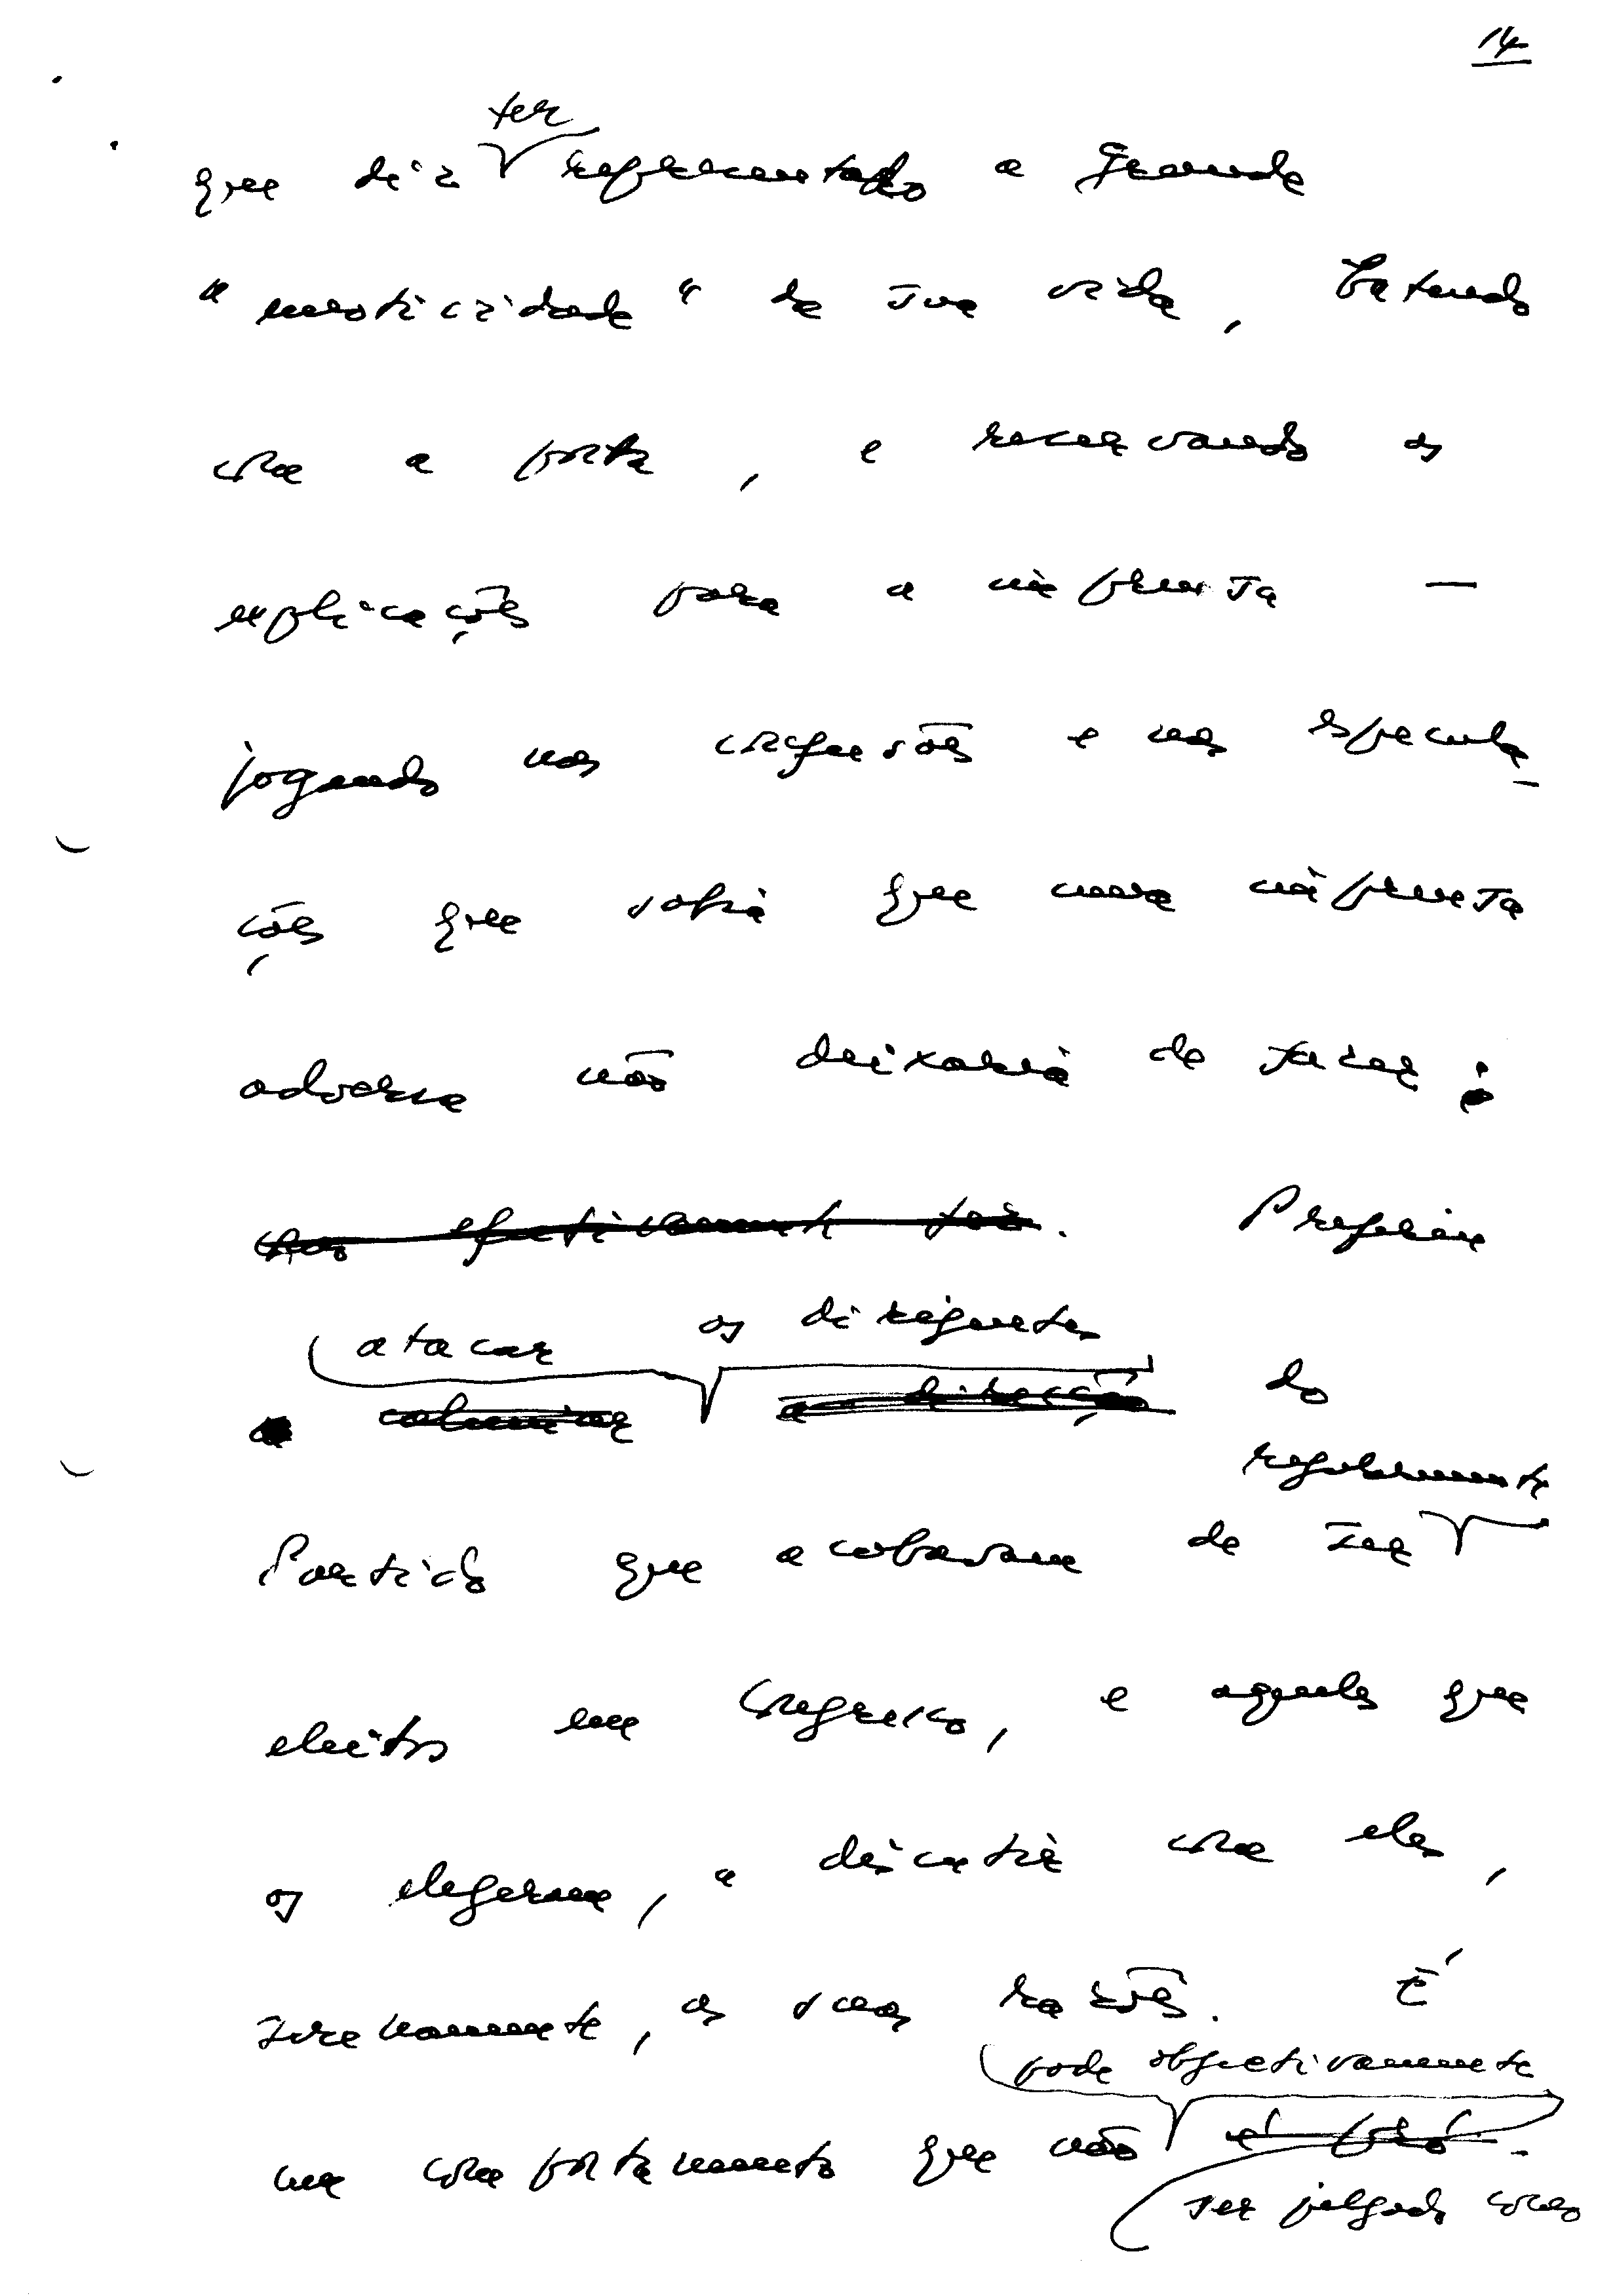 14
ter
que diz representado a grande
"meoticidade" de sua vida, batendo
com a porta, e reservando as
explicações para a imprensa —
jogando nas confusões e nas especula-
ções que sabia que uma imprensa
adversa não deixaria de fazer;
como efectivamente fez. Preferiu
atacar os dirigentes
a caluniar a direcção do
regularmente
Partido que acabavam de ser
eleitos em Congresso, e aqueles que
os elegeram, a discutir com eles,
serenamente, as suas razões. É
pode objectivamente
um comportamento que não é pró-
ser julgado como